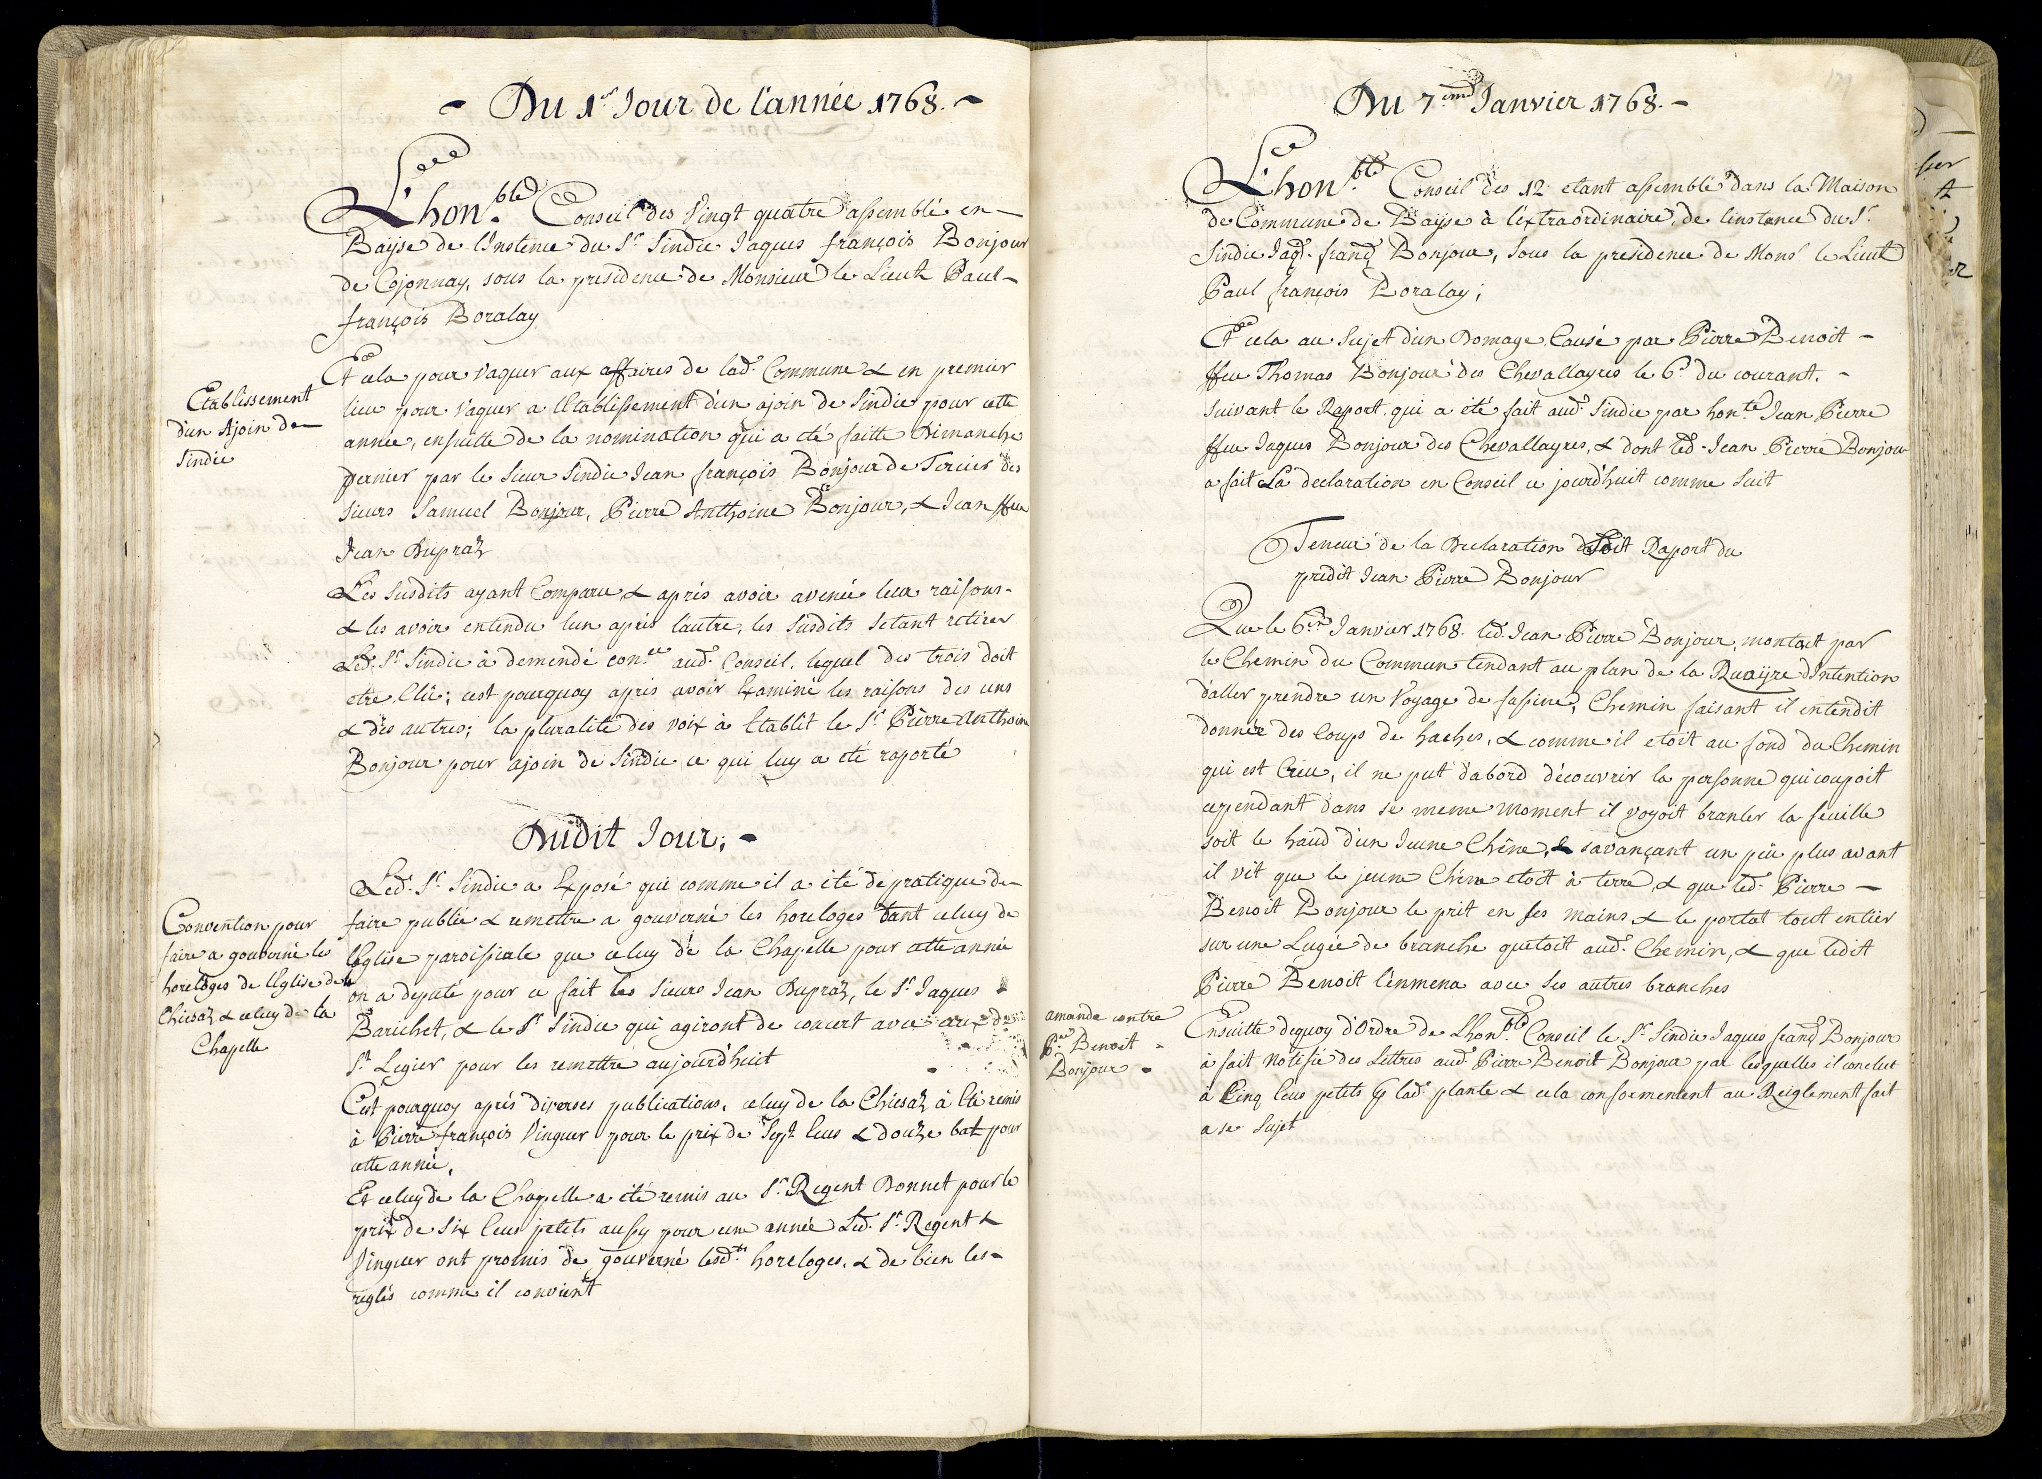 - Du 1er Jour de l'année 1768. -
L'hon.ble Conseil des Vingt quatre assemblé en
Baÿse de l'Instence du Sr Sindic Jaques françois Bonjour
de Cojonnay, sous la presidence de Monsieur le Lieut Paul
françois Boralay
Et cela pour vaquer aux affaires de lad. Commune & en premier
lieu pour vaquer a l'Etablissement d'un ajoin de Sindic pour cette
année, ensuitte de la nomination qui a été faitte Dimanche
dernier par le Sieur Sindic Jean françois Bonjour de Tercier des
Sieurs Samuel Bonjour, Pierre Anthoine Bonjour, & Jean ffeu
Jean Dupraz
Etablissement
d'un Ajoin de
Sindic
Les susdits ayant Comparu & aprés avoir avencé leur raisons
& les avoir entendu l'un aprés l'autre, les susdits setant retirer
Led. Sr Sindic à demendé aud. Conseil, lequel des trois doit
etre Elû; cest pourquoy aprés avoir Examiné les raisons des uns
& des autres; la pluralité des voix à Etablit le Sr Pierre Anthoine
Bonjour pour ajoin de Sindic ce qui luy a été raporté
Dudit Jour; -
Led. Sr Sindic a Exposé qui comme il a été de pratique de
faire publié & remettre a gouverné les horeloges tant celuy de
l'Eglise paroissiale que celuy de la Chapelle pour cette année
on a deputé pour ce fait les Sieurs Jean Dupraz, le Sr Jaques
Barichet, & le Sr Sindic qui agiront de concert avec ceux de
St Legier pour les remettre aujourd'huit
Convention pour
faire a gouverné les
horeloges de l'Eglise de la
Chiesaz & celuy de la
Chapelle
C'est pourquoy aprés diverses publications, celuy de la Chiesaz à été remis
à Pierre françois Vinguer pour le prix de Sept Ecus & douze batz pour
cette année,
Et celuy de la Chapelle a été remis au Sr Regent Bonnet pour le
prix de Six Ecus petits aussy pour une année Led. Sr Regent &
Vinguer ont promis de gouverné lesd.ts horeloges, & de bien les
reglés comme il convient
Du 7.eme Janvier 1768. -
L'hon.ble Conseil des 12 etant assemblé dans la Maison
de Commune de Baÿse à l'extraordinaire, de l'instance du Sr
Sindic Jaq. franç Bonjour, sous la presidence de Monsr le Lieut
Paul françois Boralay;
Et cela au Sujet d'un Domage Causé par Pierre Benoit -
ffeu Thomas Bonjour des Chevallayres le 6e du courant, -
suivant le Raport qui a été fait aud. Sindic par hon.te Jean Pierre
ffeu Jaques Bonjour des Chevallayres, & dont led. Jean Pierre Bonjour
a fait La declaration en Conseil ce jourd'huit comme suit
Teneur de la Declaration Soit Raport du
predit Jean Pierre Bonjour
Que le 6.eme Janvier 1768. led. Jean Pierre Bonjour, montoit par
le Chemin du Commun tendant au plan de la Ruaÿre d'Intention
d'aller prendre un Voyage de fassine, Chemin faisant il entendit
donner des Coups de haches, & comme il etoit au fond du Chemin
qui est Creu, il ne put d'abord découvrir la personne qui coupoit
cependant dans se meme moment il voyoit branler la feuille
soit le haud d'un Jeune Chêne, & savançant un peu plus avant
il vit que le jeune Chêne etoit à terre, & que led. Pierre -
Benoit Bonjour le prit en ses mains & le portat tout entier
sur une Lugée de branche quetoit aud. Chemin, & que ledit
Pierre Benoit l'enmena avec ses autres branches
amande contre
P.re Benoit
Bonjour
Ensuitte dequoy d'Ordre de L'hon.ble Conseil le Sr Sindic Jaques franç Bonjour
à fait notifié des Lettres aud. Pierre Benoit Bonjour par lesquelles il conclut
à Cinq Ecus petits lad. plante & cela conformement au Reiglement fait
a se Sujet